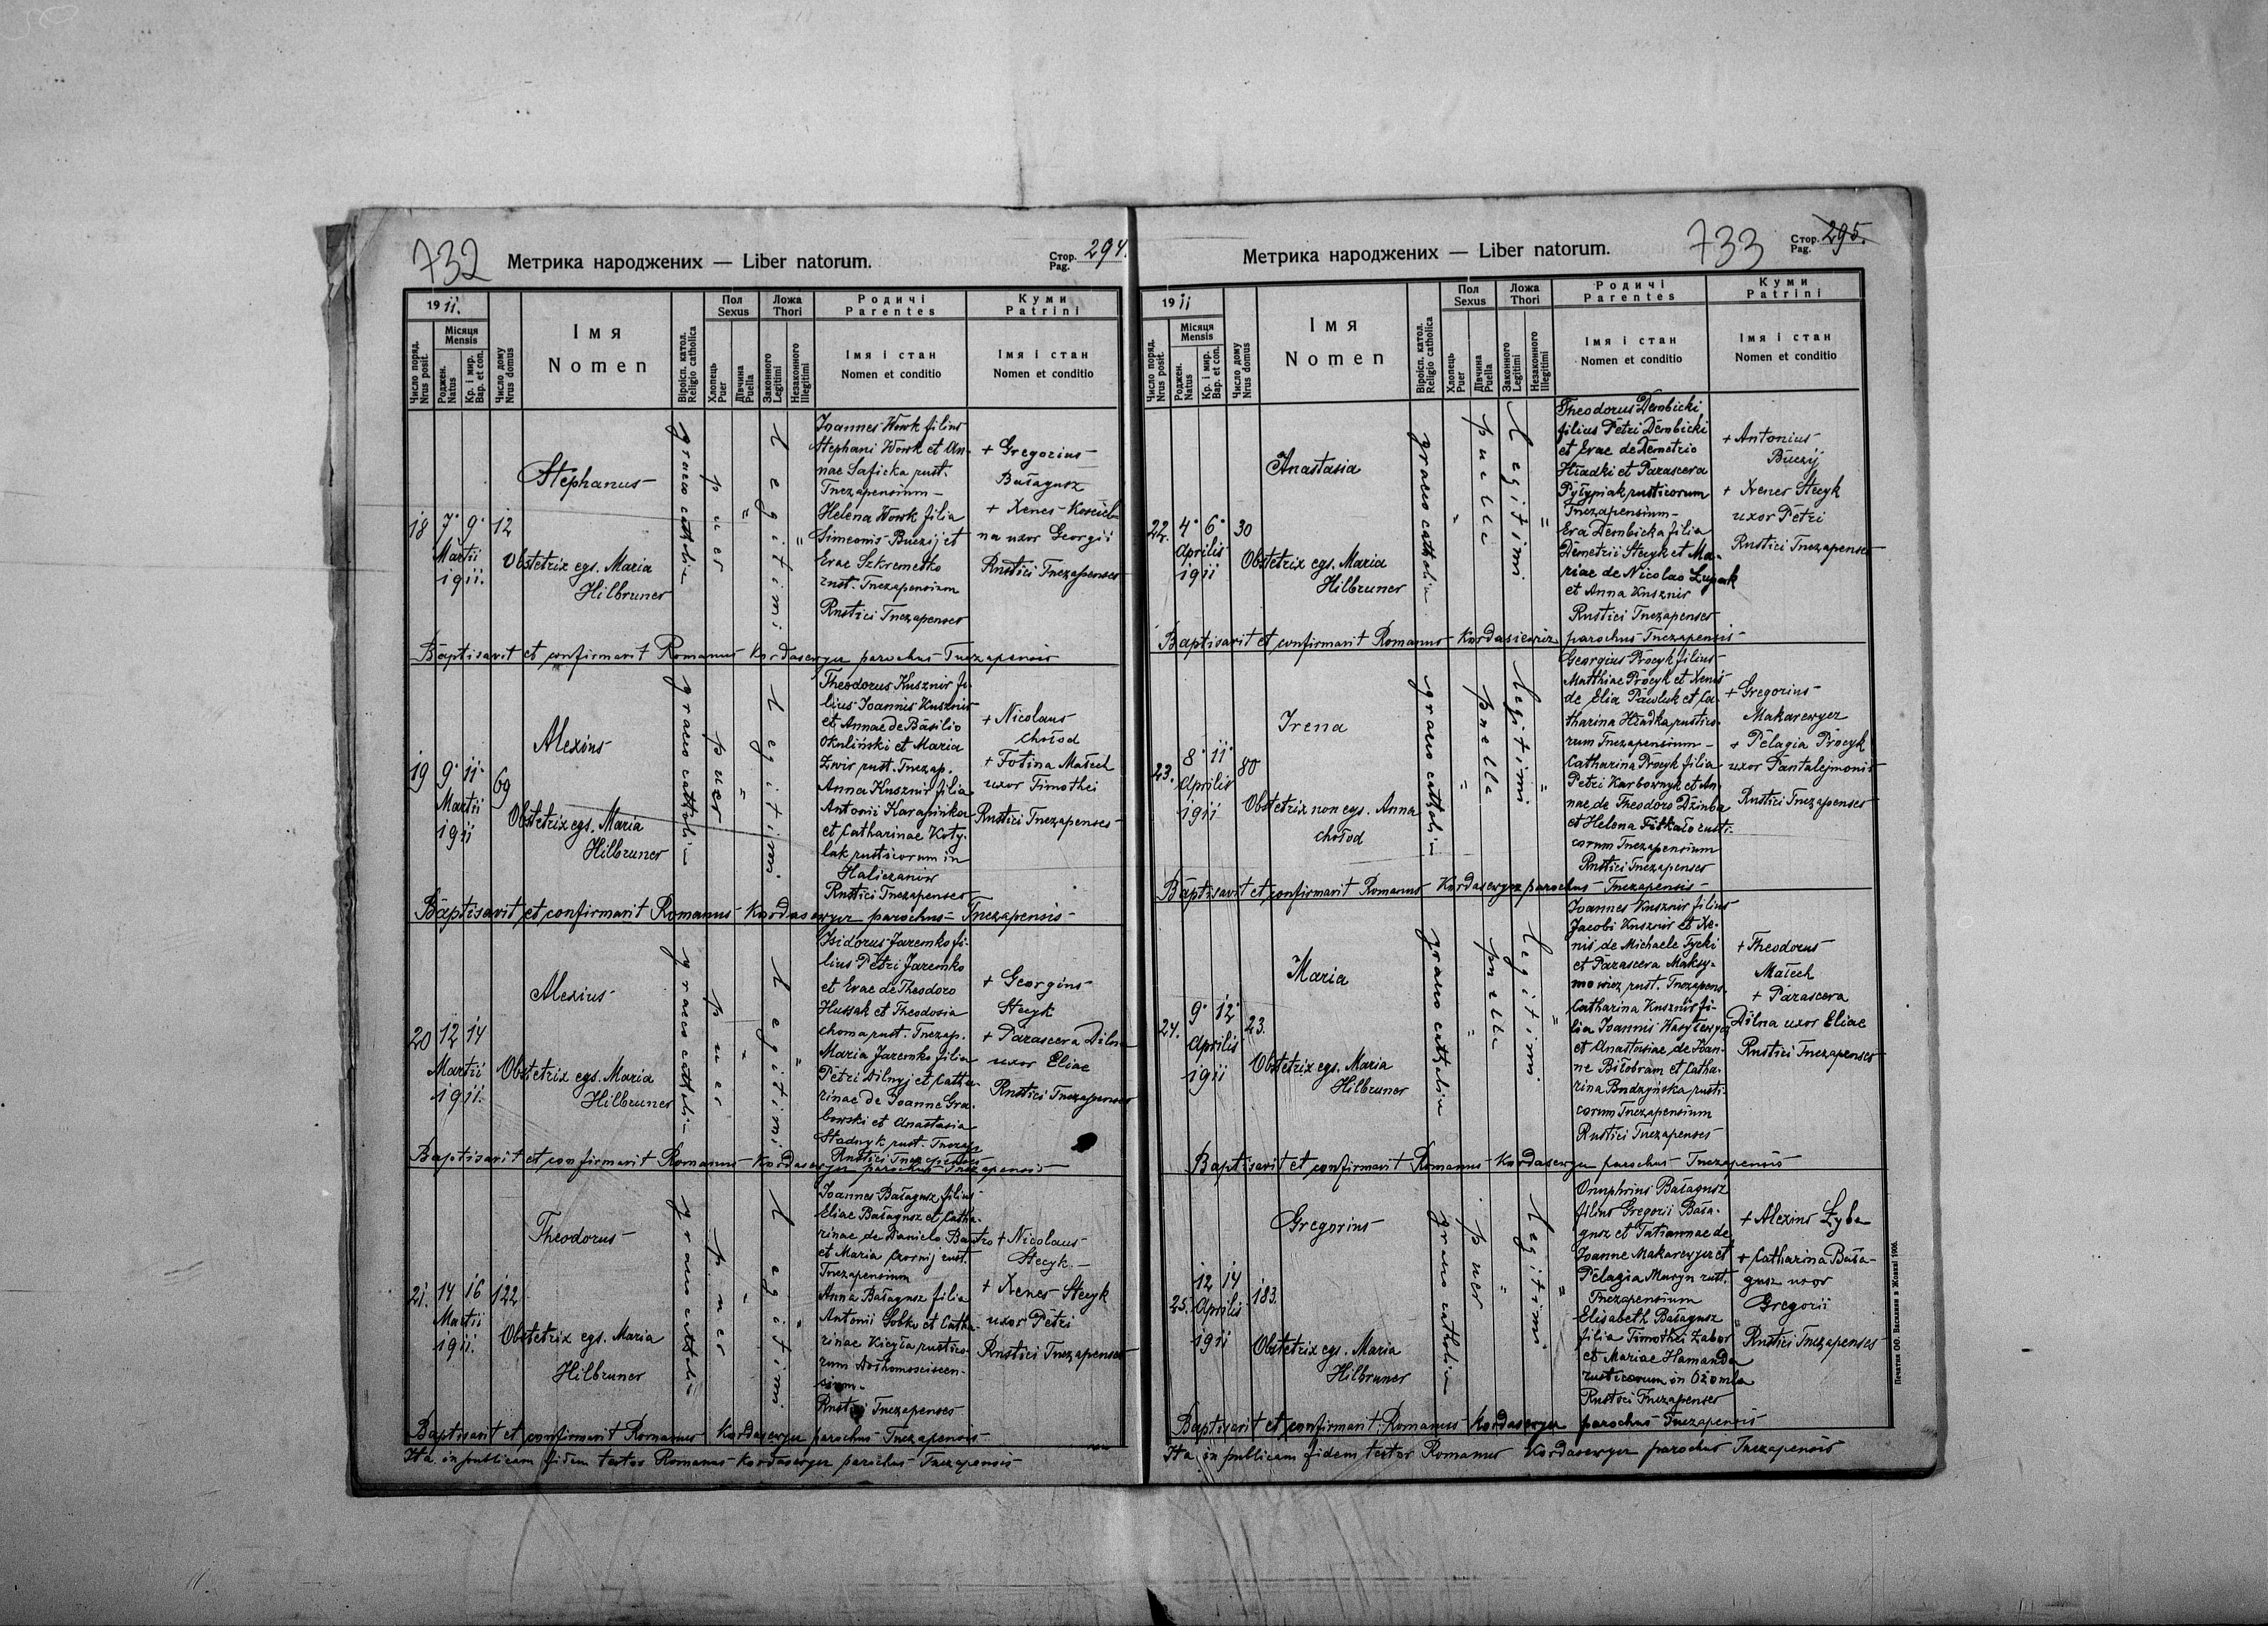 732
Метрика народжених — Liber natorum.
Стор. Pag. 294.
1911.
Число поряд. Nrus posit.
Місяця Mensis
Роджен. Natus
Кр. і мир. Bap. et con.
Число дому Nrus domus
Імя
Nomen
Віроісп. катол. Religio catholica
Пол Sexus
Хлопець Puer
Дївчина Puella
Ложа Thori
Законного Legitimi
Незаконного Illegitimi
Родичі
Parentes
Імя і стан
Nomen et conditio
Куми
Patrini
Імя і стан
Nomen et conditio
18 7. 9. 12
Martii
1911.
Stephanus
Obstetrix egs. Maria
Hilbruner
graeco catholica
puer
"
legitimi
"
Joannes Wowk filius
Stephani Wowk et An-
nae Saficka rust.
Tuczapensium
Helena Wowk filia
Simeonis Buczij et
Evae Szkremetko
rust. Tuczapensium
Rustici Tuczapenses
+ Gregorius
Bałagusz
+ Xenes Kościel-
na uxor Georgii
Rustici Tuczapenses
Baptisavit et confirmavit Romanus Kordasewycz parochus Tuczapensis
19 9. 11. 69
Martii
1911
Alexius
Obstetrix egs. Maria
Hilbruner
graeco catholica
puer
"
legitimi
Theodorus Kusznir fi-
lius Joannis Kusznir
et Annae de Basilio
Okuliński et Maria
Zwir rust. Tuczap.
Anna Kusznir filia
Antonii Karapinka
et Catharinae Koty-
lak rusticorum in
Haliczanów
Rustici Tuczapenses
+ Nicolaus
Chołod
+ Fotina Małech
uxor Timothei
Rustici Tuczapenses
Baptisavit et confirmavit Romanus Kordasewycz parochus Tuczapensis
20 12 14
Martii
1911.
Alexius
Obstetrix egs. Maria
Hilbruner
graeco catholica
puer
"
legitimi
"
Isidorus Jaremko fi-
lius Petri Jaremko
et Evae de Theodoro
Hussak et Theodosia
Choma rust. Tuczap.
Maria Jaremko filia
Petri Dilnyj et Catha-
rinae de Joanne Gra-
bowski et Anastasia
Stadnyk rust. Tuczap.
Rustici Tuczapenses
+ Georgius
Stecyk
+ Parascera Dilna
uxor Eliae
Rustici Tuczapenses
Baptisavit et confirmavit Romanus Kordasewycz parochus Tuczapensis
21. 14 16 122
Martii
1911.
Theodorus
Obstetrix egs. Maria
Hilbruner
graeco catholica
puer
"
legitimi
"
Joannes Bałagusz filius
Eliae Bałagusz et Catha-
rinae de Daniele Bautro
et Maria Czornij rust.
Tuczapensium
Anna Bałagusz filia
Antonii Sobko et Catha-
rinae Kicyła rustico-
rum
Rustici Tuczapenses
+ Nicolaus
Stecyk
+ Xenes Stecyk
uxor Petri
Rustici Tuczapenses
Baptisavit et confirmavit Romanus Kordasewycz parochus Tuczapensis
Ita in publicam fidem testor Romanus Kordasewycz parochus Tuczapensis
Метрика народжених — Liber natorum.
733
Стор. Pag. 295.
1911
Число поряд. Nrus posit.
Місяця Mensis
Роджен. Natus
Кр. і мир. Bap. et con.
Число дому Nrus domus
Імя
Nomen
Віроісп. катол. Religio catholica
Пол Sexus
Хлопець Puer
Дївчина Puella
Ложа Thori
Законного Legitimi
Незаконного Illegitimi
Родичі
Parentes
Імя і стан
Nomen et conditio
Куми
Patrini
Імя і стан
Nomen et conditio
22. 4. 6. 30
Aprilis
1911
Anastasia
Obstetrix egs. Maria
Hilbruner
graeco catholica
"
puella
legitimi
"
Theodorus Dembicki
filius Petri Dembicki
et Evae de Demetrio
Hładki et Parascera
Pyłypiak rusticorum
Tuczapensium
Eva Dembicka filia
Demetrii Stecyk et Ma-
riae de Nicolao Łupak
et Anna Kusznir
Rustici Tuczapenses
+ Antonius
Buczij
+ Xenes Stecyk
uxor Petri
Rustici Tuczapenses
Baptisavit et confirmavit Romanus Kordasiewicz parochus Tuczapensis
23. 8. 11. 80
Aprilis
1911
Irena
Obstetrix non egs. Anna
Chołod
graeco catholica
"
puella
legitimi
"
Georgius Procyk filius
Matthiae Procyk et Xenis
de Elia Pawluk et Ca-
tharina Hładka rustico-
rum Tuczapensium
Catharina Procyk filia
Petri Karbownyk et An-
nae de Theodoro Dziuba
et Helena Fitkało rusti-
corum Tuczapensium
Rustici Tuczapenses
+ Gregorius
Makarewycz
+ Pelagia Procyk
uxor Pantalejmonis
Rustici Tuczapenses
Baptisavit et confirmavit Romanus Kordasewycz parochus Tuczapensis
24. 9. 12. 23.
Aprilis
1911
Maria
Obstetrix egs. Maria
Hilbruner
graeco catholica
"
puella
legitimi
"
Joannes Kusznir filius
Jacobi Kusznir et Xe-
nis de Michaele Tycki
et Parascera Maksy-
mowicz rust. Tuczapens.
Catharina Kusznir fi-
lia Joannis Wasylewycz
et Anastasiae de Joan-
ne Biłobram et Catha-
rina Budzyńska rusti-
corum Tuczapensium
Rustici Tuczapenses
+ Theodorus
Małech
+ Parascera
Dilna uxor Eliae
Rustici Tuczapenses
Baptisavit et confirmavit Romanus Kordasewycz parochus Tuczapensis
25. 12 14 183.
Aprilis
1911
Gregorius
Obstetrix egs. Maria
Hilbruner
graeco catholica
puer
"
legitimi
"
Onuphrius Bałagusz
filius Gregorii Bała-
gusz et Tatiannae de
Joanne Makarewycz et
Pelagia Muryn rust.
Tuczapensium
Elisabeth Bałagusz
filia Timothei Zabor
et Mariae Hamanda
rusticorum in Ożomla
Rustici Tuczapenses
+ Alexius Łyba
+ Catharina Bała-
gusz uxor
Gregorii
Rustici Tuczapenses
Baptisavit et confirmavit Romanus Kordasewycz parochus Tuczapensis
Ita in publicam fidem testor Romanus Kordasewycz parochus Tuczapensis
Печатня ОО. Василиян в Жовкві 1906.